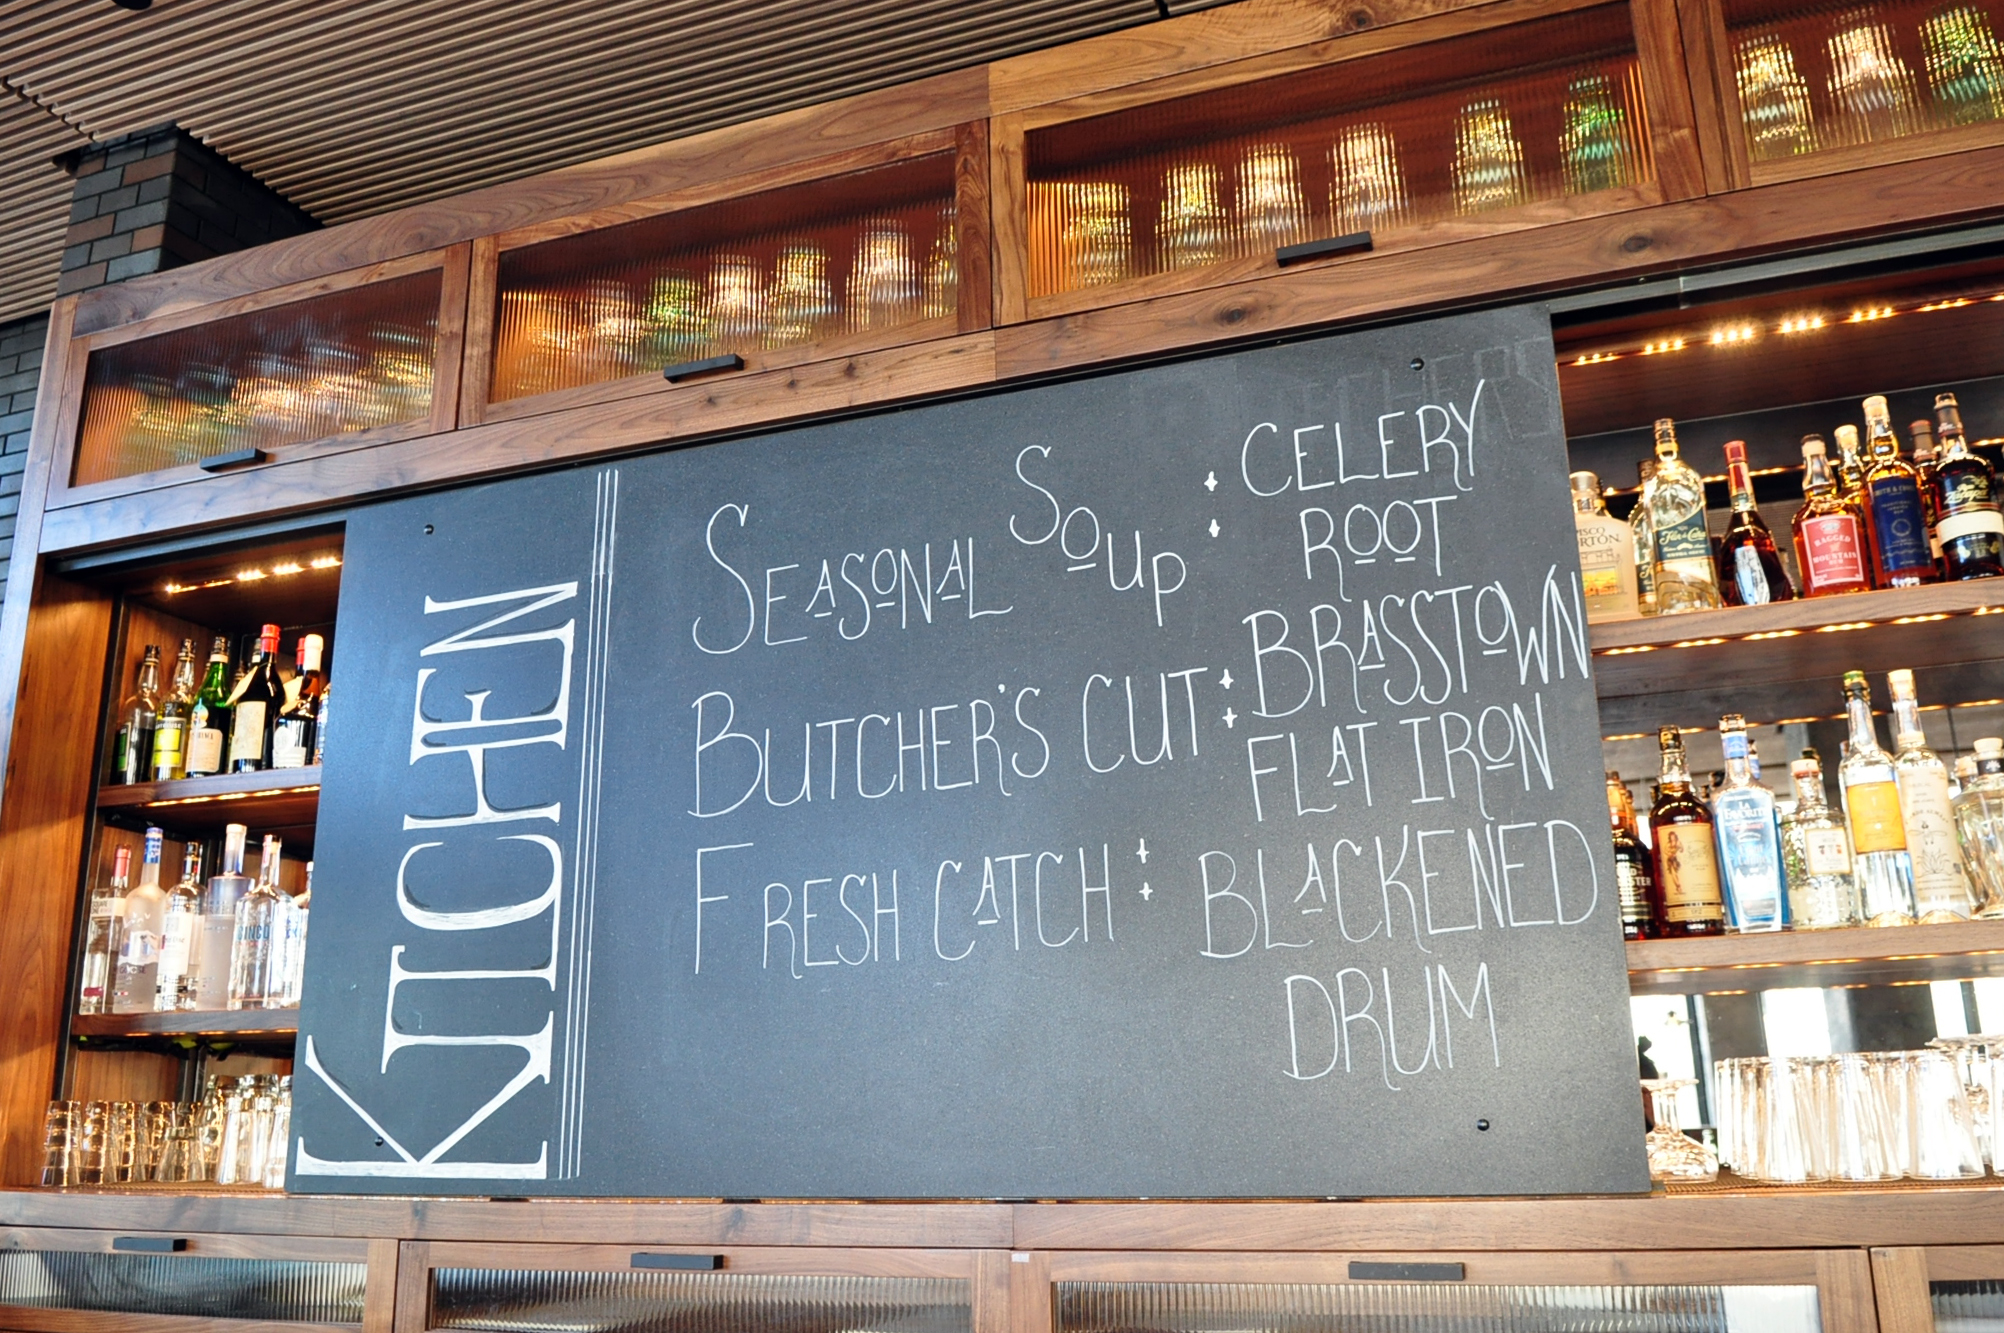 KITCHEN
SEASONAL SOUP : CELERY
ROOT
BUTCHER'S CUT : BRASSTOWN
FLAT IRON
FRESH CATCH : BLACKENED
DRUM
RAGGED
MOUNTAIN